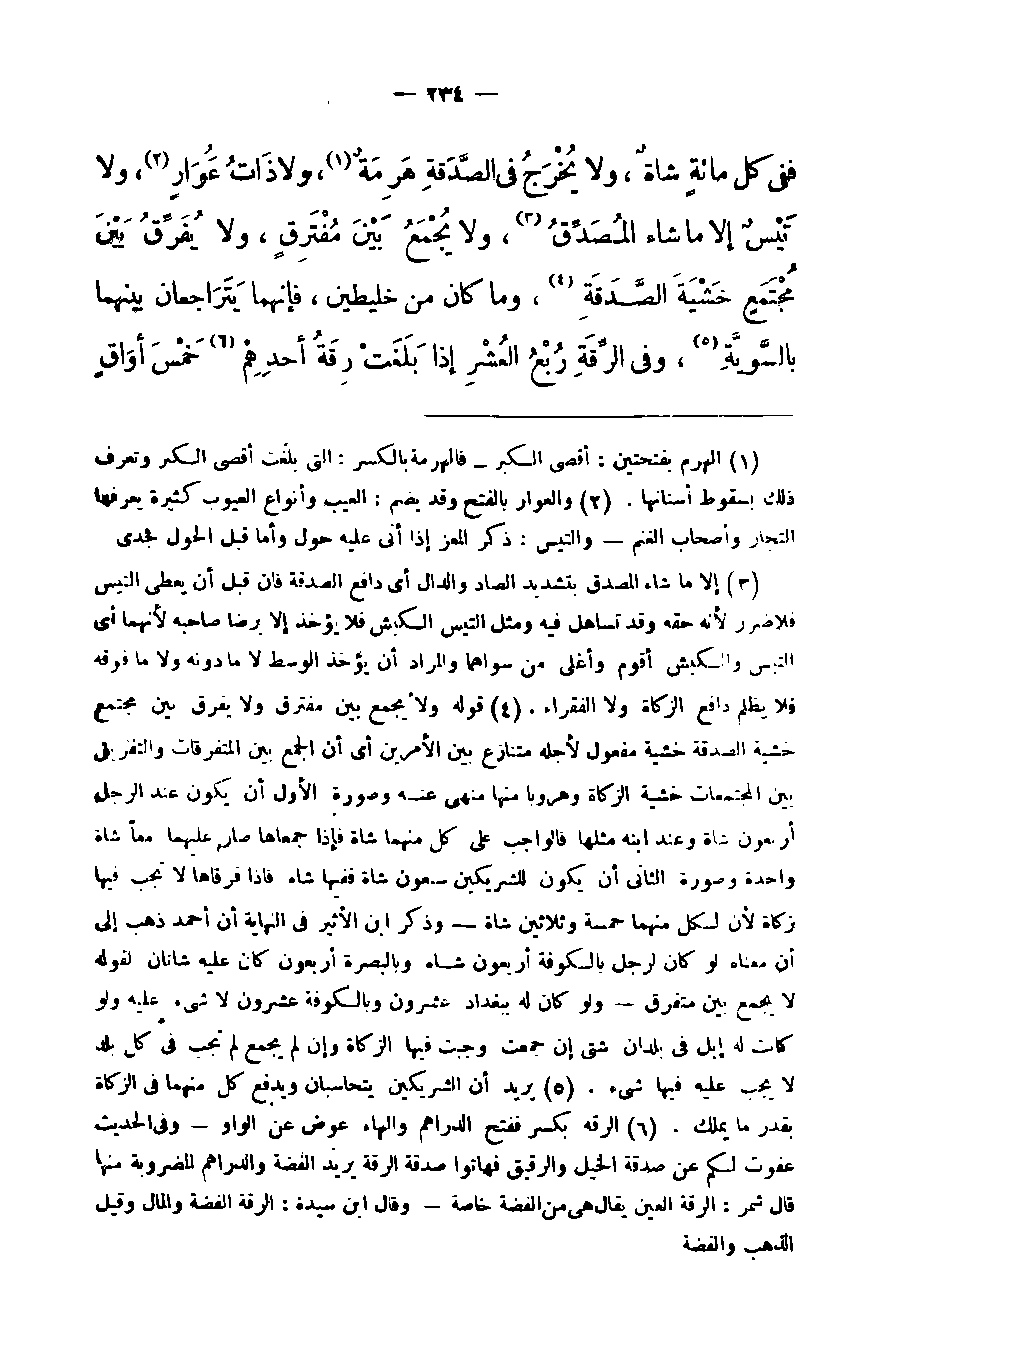 — ٢٣٤ —
ففى كل مائةٍ شاةٌ ، ولا يُخْرَجُ فى الصَّدَقةِ هَرِمَةٌ (١) ، ولا ذَاتُ عُوَارٍ (٢) ، ولا
تَيْسٌ إلا ما شاء المُصَدِّقُ (٣) ، ولا يُجْمَعُ بَيْنَ مُفْتَرِقٍ ، ولا يُفَرَّقُ بَيْنَ
مُجْتَمَعٍ خَشْيَةَ الصَّدَقَةِ (٤) ، وما كان من خليطين ، فإنهما يَتَرَاجعان بينهما
بالسَّوِيَّةِ (٥) ، وفى الرِّقَةِ رُبْعُ العُشْرِ إذا بَلَغَتْ رِقَةُ أحدِهِمْ (٦) خَمْسَ أوَاقٍ
(١) الهرم بفتحتين : أقصى الكبر – فالهرمة بالكسر : التى بلغت أقصى الكبر وتعرف
ذلك بسقوط أسنانها . (٢) والعوار بالفتح وقد يضم : العيب وأنواع العيوب كثيرة يعرفها
التجار وأصحاب الغنم — والتيس : ذكر المعز إذا أتى عليه حول وأما قبل الحول فجدى
(٣) إلا ما شاء المصدق بتشديد الصاد والدال أى دافع الصدقة فان قبل أن يعطى التيس
فلا ضرر لأنه حقه وقد تساهل فيه ومثل التيس الكبش فلا يؤخذ إلا برضا صاحبه لأنهما أى
التيس والكبش أقوم وأغلى من سواهما والمراد أن يؤخذ الوسط لا ما دونه ولا ما فوقه
فلا يظلم دافع الزكاة ولا الفقراء . (٤) قوله ولا يجمع بين مفترق ولا يفرق بين مجتمع
خشية الصدقة خشية مفعول لأجله متنازع بين الأمرين أى أن الجمع بين المتفرقات والتفريق
بين المجتمعات خشية الزكاة وهروبا منها منهى عنه وصورة الأول أن يكون عند الرجل
أربعون شاة وعند ابنه مثلها فالواجب على كل منهما شاة فإذا جمعاها صار عليهما معاً شاة
واحدة وصورة الثانى أن يكون للشريكين سبعون شاة ففيها شاه فاذا فرقاها لا تجب فيها
زكاة لأن لكل منهما خمسة وثلاثين شاة — وذكر ابن الأثير فى النهاية أن أحمد ذهب إلى
أن معناه لو كان لرجل بالكوفة أربعون شاه وبالبصرة أربعون كان عليه شاتان لقوله
لا يجمع بين متفرق — ولو كان له ببغداد عشرون وبالكوفة عشرون لا شىء عليه ولو
كانت له إبل فى بلدان شتى إن جمعت وجبت فيها الزكاة وإن لم يجمع لم تجب فى كل بلد
لا يجب عليه فيها شىء . (٥) يريد أن الشريكين يتحاسبان ويدفع كل منهما فى الزكاة
بقدر ما يملك . (٦) الرقه بكسر ففتح الدراهم والهاء عوض عن الواو — وفى الحديث
عفوت لكم عن صدقة الخيل والرقيق فهاتوا صدقة الرقة يريد الفضة والدراهم المضروبة منها
قال شمر : الرقة العين يقال هى من الفضة خاصة — وقال ابن سيدة : الرقة الفضة والمال وقيل
الذهب والفضة